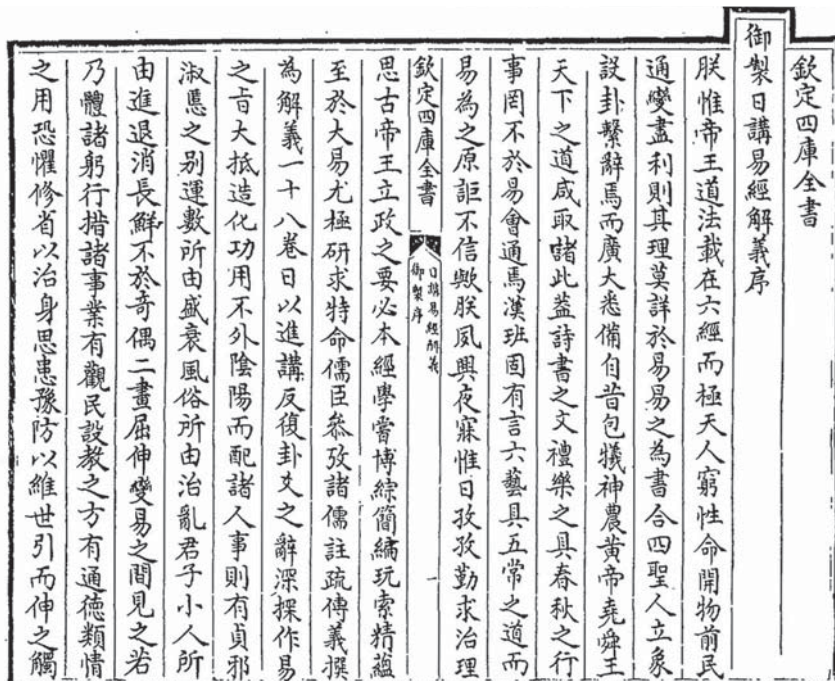 欽定四庫全書
御製日講易經解義序
朕惟帝王道法載在六經而極天人窮性命開物前民
通變盡利則其理莫詳於易易之為書合四聖人立象
設卦繫辭焉而廣大悉備自昔包犧神農黃帝堯舜王
天下之道咸取諸此蓋詩書之文禮樂之具春秋之行
事罔不於易會通焉漢班固有言六藝具五常之道而
易為之原詎不信歟朕夙興夜寐惟日孜孜勤求治理
欽定四庫全書
日講易經解義
御製序
一
思古帝王立政之要必本經學嘗博綜簡編玩索精蘊
至於大易尤極研求特命儒臣參攷諸儒註疏傳義撰
為解義一十八卷日以進講反復卦爻之辭深探作易
之旨大抵造化功用不外陰陽而配諸人事則有貞邪
淑慝之别運數所由盛衰風俗所由治亂君子小人所
由進退消長鮮不於奇偶二畫屈伸變易之間見之若
乃體諸躬行措諸事業有觀民設教之方有通德類情
之用恐懼修省以治身思患豫防以維世引而伸之觸